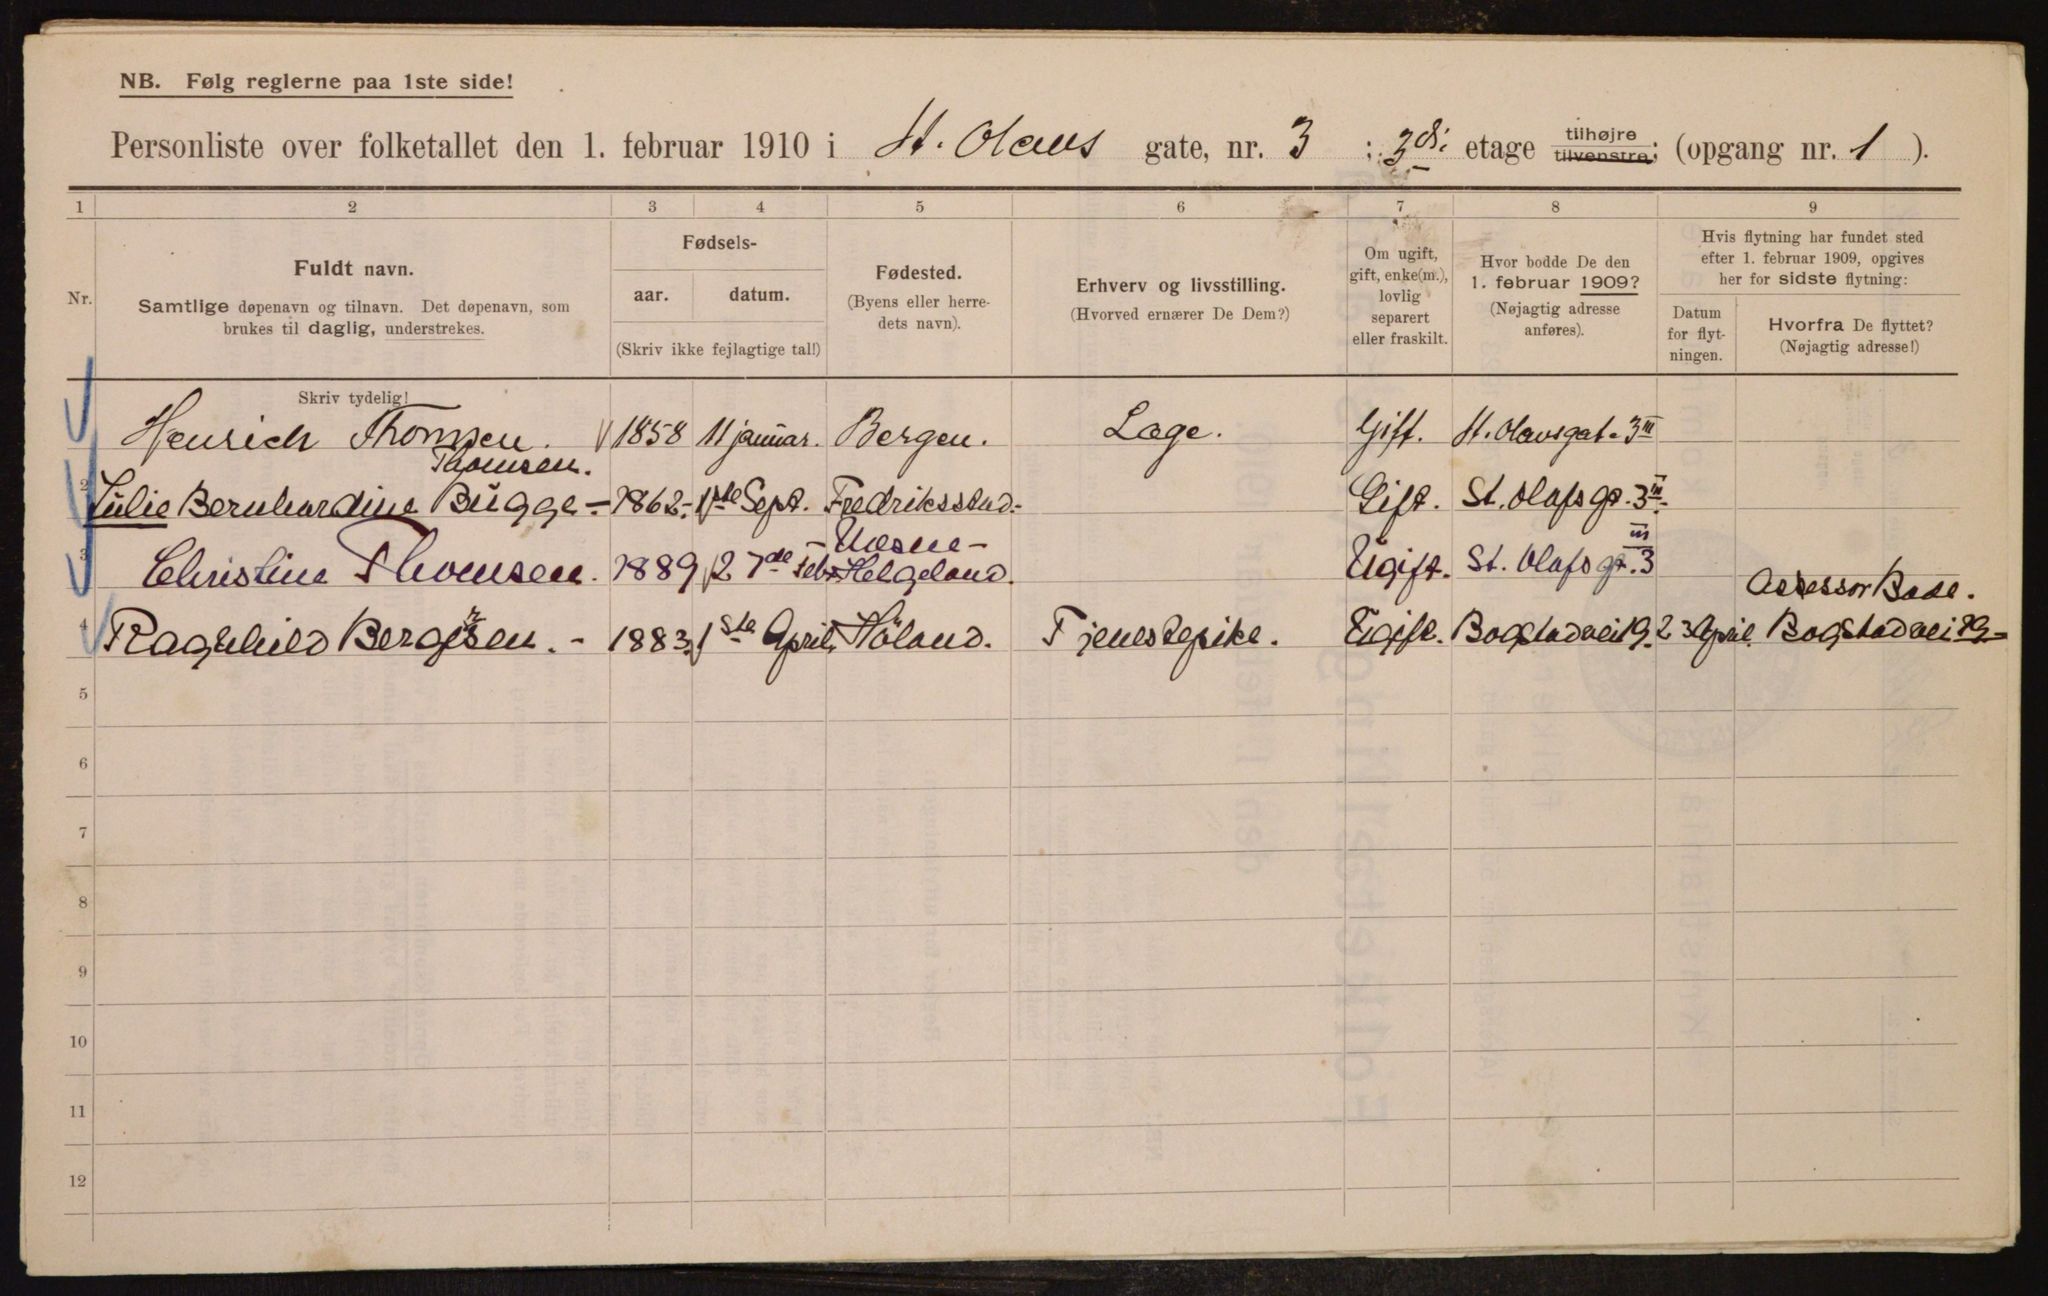 NB. Følg reglerne paa 1ste side!
Personliste over folketallet den 1. februar 1910 i St. Olavs gate, nr. 3 ; 3di etage tilhøjre tilvenstre; (opgang nr. 1 ).
1 2 3 4 5 6 7 8 9
Nr.
Fuldt navn.
Samtlige døpenavn og tilnavn. Det døpenavn, som
brukes til daglig, understrekes.
Skriv tydelig!
Fødsels-
aar. datum.
(Skriv ikke fejlagtige tal!)
Fødested.
(Byens eller herre-
dets navn).
Erhverv og livsstilling.
(Hvorved ernærer De Dem?)
Om ugift,
gift, enke(m.),
lovlig
separert
eller fraskilt.
Hvor bodde De den
1. februar 1909?
(Nøjagtig adresse
anføres).
Hvis flytning har fundet sted
efter 1. februar 1909, opgives
her for sidste flytning:
Datum
for flyt-
ningen.
Hvorfra De flyttet?
(Nøjagtig adresse!)
Henrich Thomsen. 1858 11 januar. Bergen. Læge. Gift. St. Olavsgat. 3 III
Thomsen.
2 Julie Bernhardine Bugge - 1862- 1ste Sept. Fredriksstad- Gift. St. Olafs gt. 3 III
- Væsne -
3 Christine Thomsen. 1889 27de febr Helgeland. Ugift. St. Olafs gt. 3 III
Assessor Bade.
4 Ragnhild Bergersen. - 1883. 1ste April. Höland. Tjenestepike. Ugift. Bogstadvei 19. 23 April. Bogstadvei 19-
5
6
7
8
9
10
11
12